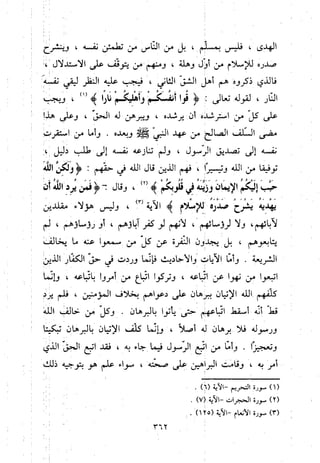 الهدى ، فليس بمسلم ، بل من الناس من تطمئن نفسه ، وينشرح
صدره للإسلام من أول وهلة ، ومنهم من يتوقف على الاستدلال ،
فالذي ذكروه هم أهل الشق الثاني ، فيجب عليه النظر ليقي نفسه
النار ، لقوله تعالى : ﴿ قوا أنفسكم وأهليكم نارا ﴾ (١) ، ويجب
على كل من استرشده أن يرشده ، ويبرهن له الحق ، وعلى هذا
مضى السلف الصالح من عهد النبي ﷺ وبعده . وأما من استقرت
نفسه إلى تصديق الرسول ، ولم تنازعه نفسه إلى طلب دليل ،
توفيقا من الله وتيسيرا ، فهم الذين قال الله في حقهم : ﴿ ولكن الله
حبب إليكم الإيمان وزينه في قلوبكم ﴾ (٢) ، وقال : ﴿ فمن يرد الله أن
يهديه يشرح صدره للإسلام ﴾ الآية (٣) ، وليس هؤلاء مقلدين
لآبائهم ، ولا لرؤسائهم ، لأنهم لو كفر آباؤهم ، أو رؤساؤهم ، لم
يتابعوهم ، بل يجدون النفرة عن كل من سمعوا عنه ما يخالف
الشريعة . وأما الآيات والأحاديث فإنما وردت في حق الكفار الذين
اتبعوا من نهوا عن اتباعه ، وتركوا اتباع من أمروا باتباعه ، وإنما
كلفهم الله الإتيان ببرهان على دعواهم بخلاف المؤمنين ، فلم يرد
قط أنه أسقط اتباعهم حتى يأتوا بالبرهان . وكل من خالف الله
ورسوله فلا برهان له أصلا ، وإنما كلف الإتيان بالبرهان تبكيتا
وتعجيزا . وأما من اتبع الرسول فيما جاء به ، فقد اتبع الحق الذي
أمر به ، وقامت البراهين على صحته ، سواء علم هو بتوجيه ذلك
(١) سورة التحريم - الآية (٦) .
(٢) سورة الحجرات - الآية (٧) .
(٣) سورة الأنعام - الآية (١٢٥) .
٣٦٢